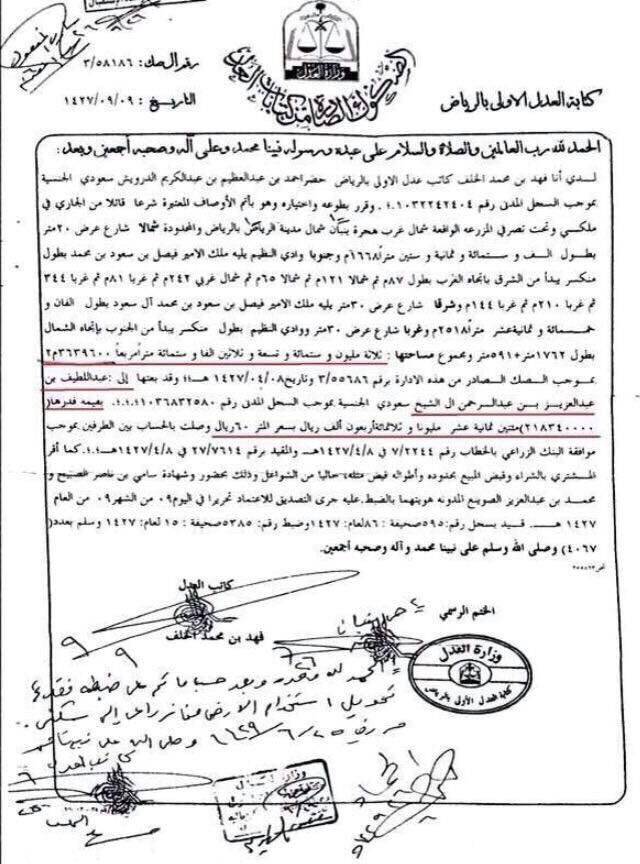 رقم الصك: ٣/٥٨١٨٦
التاريخ: ١٤٢٧/٠٩/٠٩
وزارة العدل
كتابة العدل الاولى بالرياض
الحمد لله رب العالمين والصلاة والسلام على عبده ورسوله نبينا محمد وعلى آله وصحبه أجمعين وبعد:
لدي أنا فهد بن محمد الخلف كاتب عدل الاولى بالرياض حضر احمد بن عبدالعظيم بن عبدالكريم الدرويش سعودي الجنسية
بموجب السجل المدنى رقم ١٠٣٢٢٤٢٤٠٤؛.؛ وقرر بطوعه واختياره وهو بأتم الأوصاف المعتبرة شرعا قائلا من الجاري في
ملكي وتحت تصرفي المزرعه الواقعة شمال غرب هجرة بنبان شمال مدينة الرياض بالرياض والمحدودة شمالا شارع عرض ٢٠متر
بطول الف و ستمائة و ثمانية و ستين متراً١٦٦٨م وجنوبا وادي النظيم يليه ملك الامير فيصل بن سعود بن محمد بطول
منكسر يبدأ من الشرق باتجاه الغرب بطول ٨٧م ثم شمالا ١٢١م ثم شمالا ٦٥م ثم شمال غربي ٢٤٢م ثم غربا ٨١م ثم غربا ٣٤٤
ثم غربا ٢١٠م ثم غربا ١٤٤م وشرقا شارع عرض ٣٠متر يليه ملك الامير فيصل بن سعود بن محمد آل سعود بطول الفان و
خمسمائة و ثمانيةعشر متراً٢٥١٨م وغربا شارع عرض ٣٠متر ووادي النظيم بطول منكسر يبدأ من الجنوب بإتجاه الشمال
بطول ١٧٦٢متر+٥٩١متر وبمجموع مساحتها : ثلاثة مليون و ستمائة و تسعة و ثلاثين الفا و ستمائة متراًمربعاً ٣٦٣٩٦٠٠م٢
بموجب الصك الصادر من هذه الادارة برقم ٣/٥٥٦٨٦ وتاريخ١٤٢٧/٠٤/٠٨هـ؛؛ وقد بعتها إلى :عبداللطيف بن
عبدالعزيز بن عبدالرحمن ال الشيخ سعودي الجنسية بموجب السجل المدنى رقم ١٠٣٦٨٣٢٥٨٠؛.؛.؛ بقيمه قدرها(
٢١٨٣٤٠٠٠٠)مئتين ثمانية عشر مليونا و ثلاثمائةأربعون ألف ريال بسعر المتر ٦٠ريال وصلت بالحساب بين الطرفين بموجب
موافقة البنك الزراعي بالخطاب رقم ٧/٢٢٤٤ في ١٤٢٧/٤/٨هـ والمقيد برقم ٢٧/٧٦١٤ في ١٤٢٧/٤/٨هـ؛.؛ كما أقر
المشتري بالشراء وقبض المبيع بحدوده وأطواله قبض مثله خاليا من الشواغل وذلك بحضور وشهادة سامي بن ناصر الصبيح و
محمد بن عبدالعزيز الصويغ المدونه هويتهما بالضبط عليه جرى التصديق للاعتماد تحريرا في اليوم٠٩ من الشهر٠٩ من العام
١٤٢٧ هـ قيد بسجل رقم:٥٩٥صحيفة :٨٦لعام: ١٤٢٧وضبط رقم: ٥٣٨٥صحيفة :١٥لعام: ١٤٢٧ وسلم بعدد(
٤٠٦٧) وصلى الله وسلم على نبينا محمد وآله وصحبه أجمعين.
كاتب العدل
فهد بن محمد الخلف
الختم الرسمي
وزارة العدل
كتابة العدل الأولى بالرياض
الحمد لله وحده وبعد